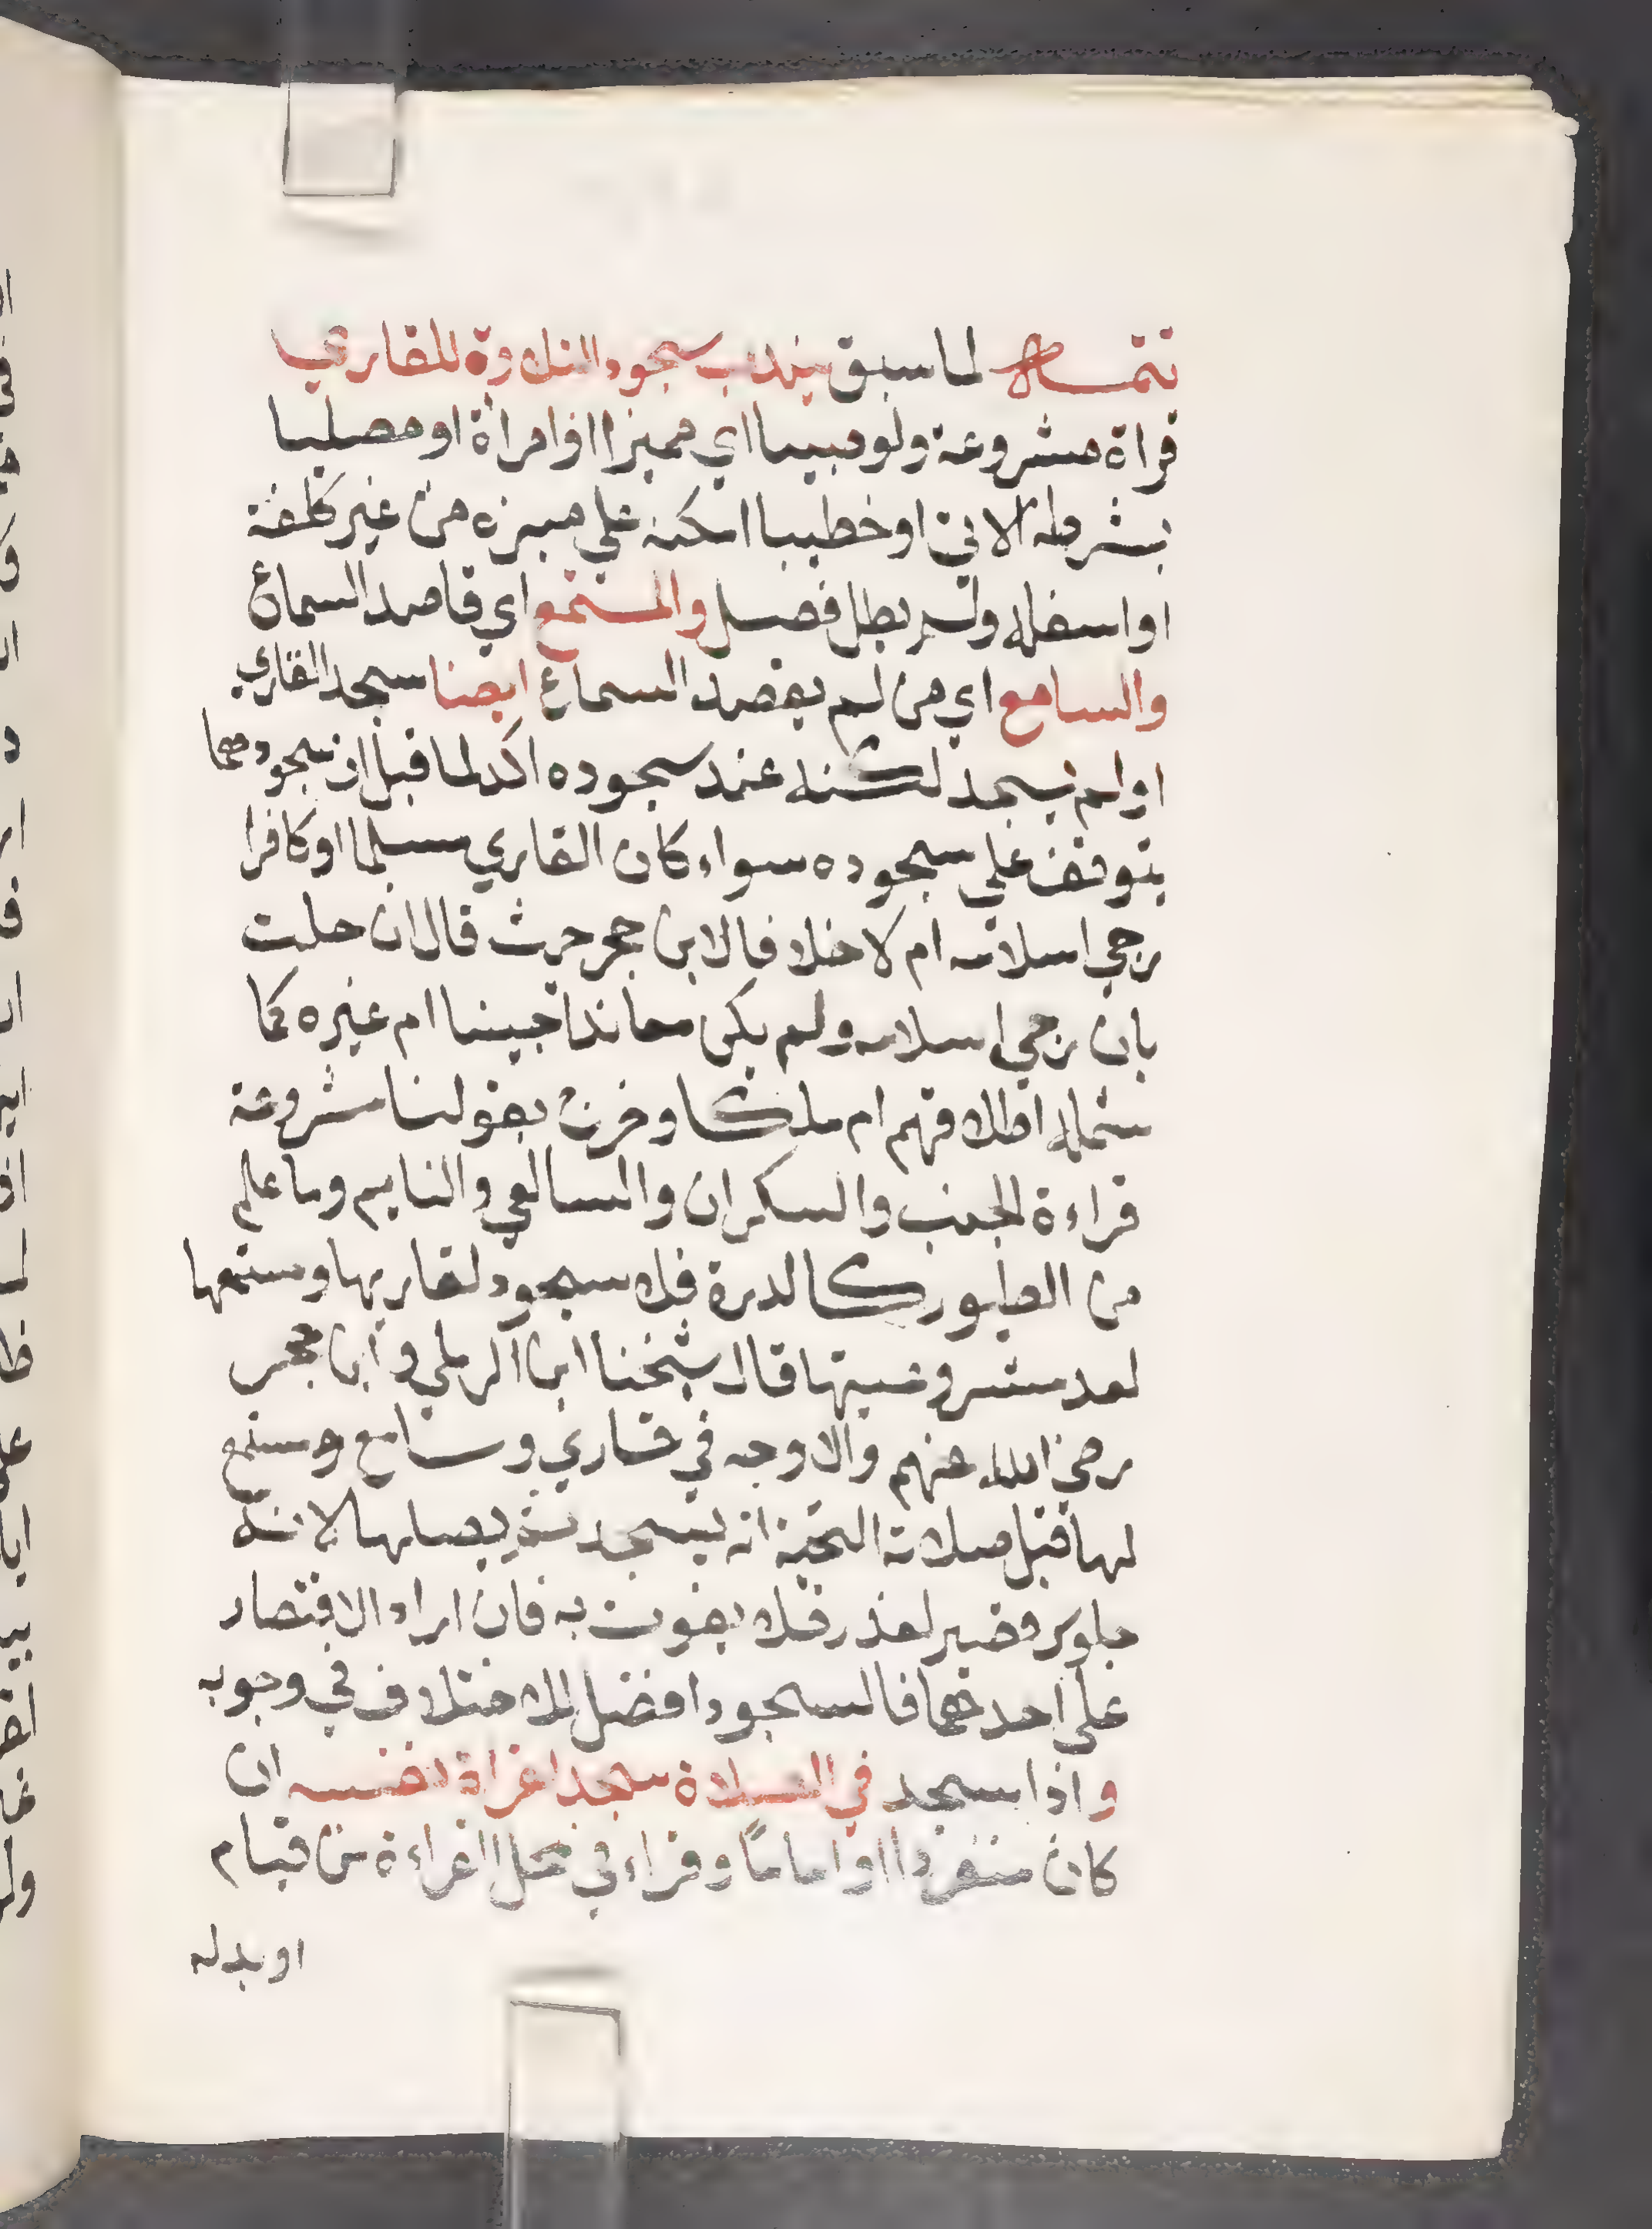 تتمـــة لما سبق يندب سجود التلاوة للقاري
قراة مشروعة ولو صبيا اي مميزا او امراة او مصليا
بشرطه الاتي او خطيبا امكنه علي منبره من غير كلفة
او اسفله ولم يطل فصل والمستمع اي قاصد السماع
والسامع اي من لم يقصد السماع ايضا سجد القاري
او لم يسجد لكنه عند سجوده اكد لما قبل ان سجودهما
يتوقف علي سجوده سواء كان القاري مسلما او كافرا
رجي اسلامه ام لا خلافا لابن حجر حيث قال ان حلت
بان رجي اسلامه ولم يكن معاندا جنيا ام غيره كما
شمله اطلاقهم ام ملكا وخرج بقولنا مشروعة
قراءة الجنب والسكران والساهي والنايم وما علم
من الطيور كالدرة فلا سجود لقاريها ومستمعها
لعدم مشروعيتها قال شيخنا ابن الرملي وابن حجر
رضي الله عنهم والاوجه في قاري وسامع ومستمع
لها قبل صلاته التحية انه يسجد ثم يصليها لانه
جلوس قصير لعذر فلا يفوت به فان اراد الاقتصار
علي احدهما فالسجود افضل للاختلاف في وجوبه
واذا سجد في الصلاة سجد لقراة نفسه ان
كان منفردا او اماما وقراء في محل القراءة من قيام
او بدله